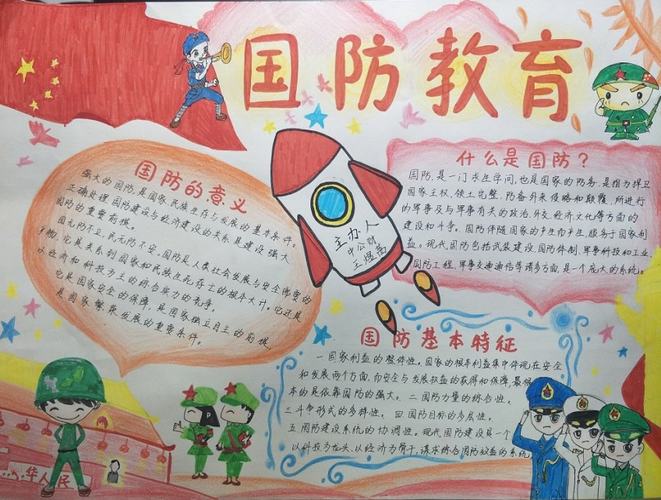 国防教育
国防的意义
强大的国防,是国家、民族生存与发展的基本条件。
正确处理国防建设与经济建设的关系是建设强大
国防的重要前提。
国无防不立,民无防不安,国防是人类社会发展与安全需要的
产物,它是关系到国家和民族生死存亡的根本大计,它还是
以经济和科技为主的综合实力的竞争。
它是国家安全的保障,是国家独立自主的前提
是国家繁荣发展的重要条件。
主办人
王煜
什么是国防?
国防,是一门永生学问,也是国家的防务,是指为捍卫
国家主权、领土完整,防备外来侵略和颠覆,所进行
的军事及与军事有关的政治、外交、经济文化等方面的
建设和斗争。国防伴随国家的产生而产生,服务于国家利
益。现代国防包括武装建设、国防体制、军事科技和工业、
国防工程、军事交通通信等诸多方面,是一个庞大的系统。
国防基本特征
一国家利益的整体性。国家的根本利益集中体现在安全
和发展两个方面,而安全与发展权益的获得和保障,最根
本的是依靠国防的强大。二国防力量的综合性。
三斗争形式的多样性。四国防目标的多层性。
五国防建设系统的协调性。现代国防建设是一个
以科技为龙头、以经济为骨干,谋求综合国防效益的系统
华人民